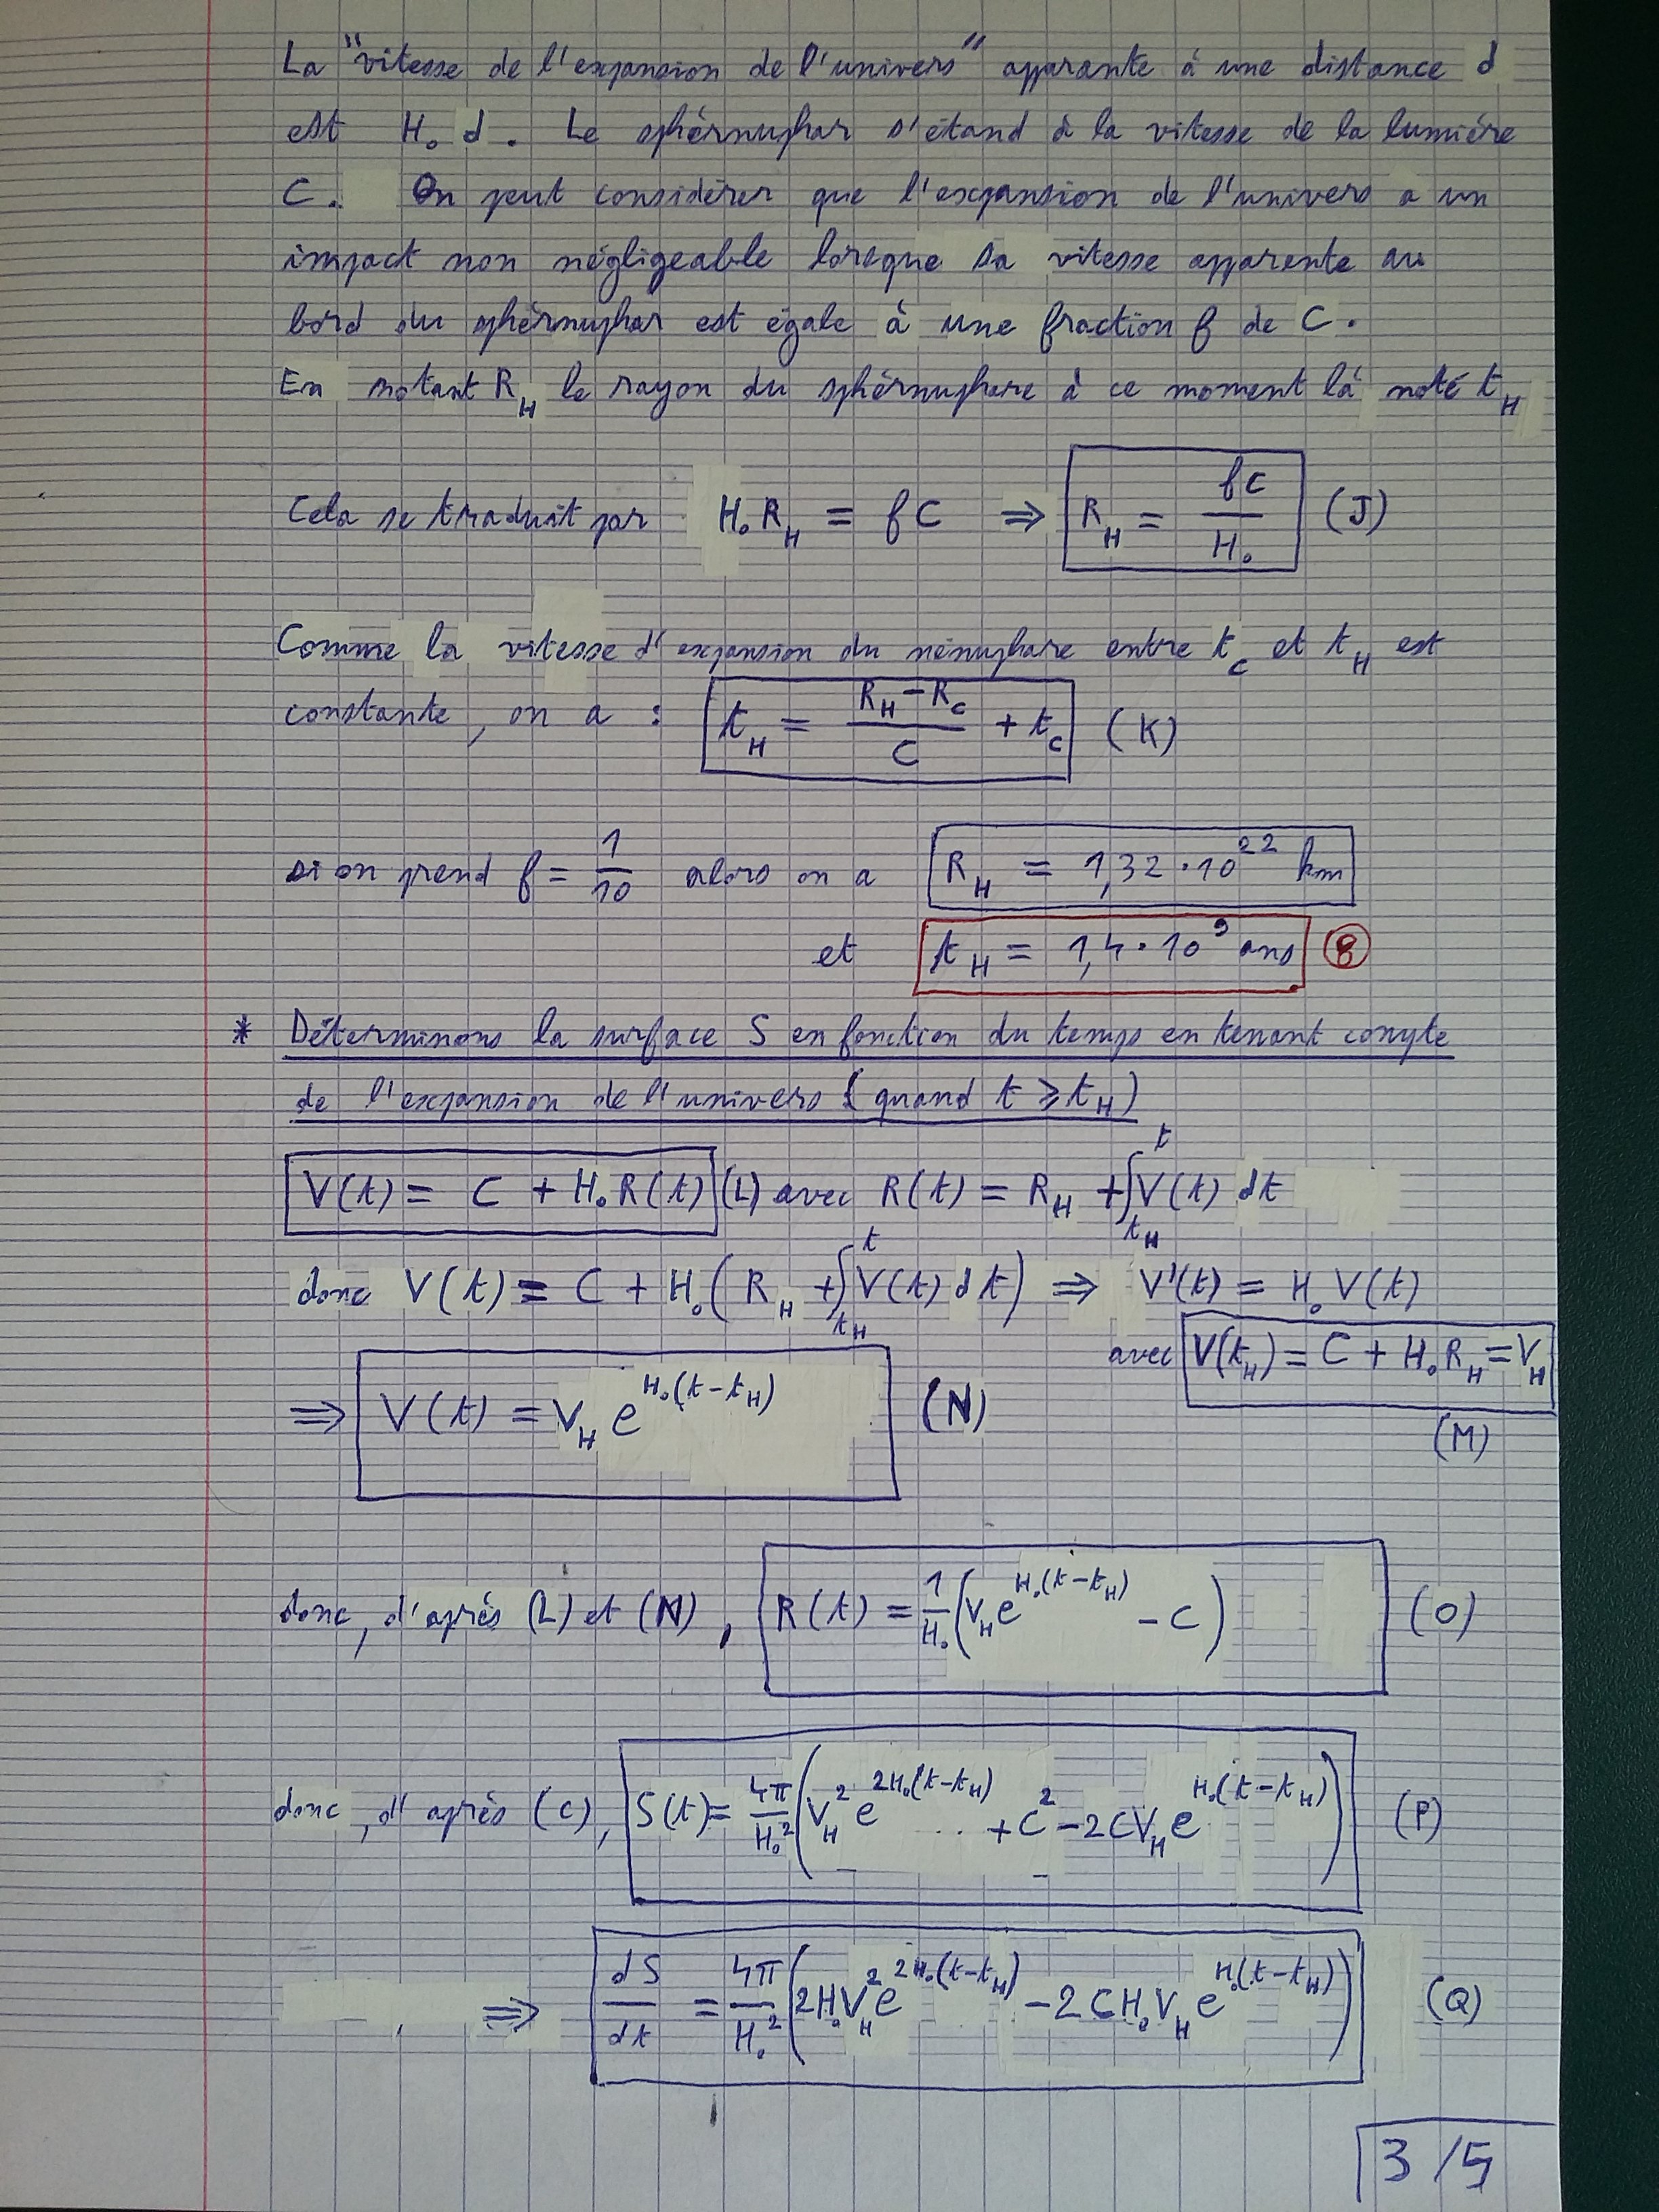 La "vitesse de l'expansion de l'univers" apparante à une distance d
est H₀ d. Le sphérnuphar s'étand à la vitesse de la lumière
C. On peut considérer que l'expansion de l'univers a un
impact non négligeable lorsque sa vitesse apparente au
bord du sphérnuphar est égale à une fraction f de C.
En notant R_H le rayon du sphérnuphare à ce moment là noté t_H
Cela se traduit par H₀ R_H = f C ⇒ R_H = fC / H₀ (J)
Comme la vitesse d'expansion du nénuphare entre t_c et t_H est
constante, on a : t_H = (R_H - R_c) / C + t_c (K)
si on prend f = 1/10 alors on a R_H = 1,32 · 10²² km
et t_H = 1,4 · 10⁹ ans 8
* Déterminons la surface S en fonction du temps en tenant compte
de l'expansion de l'univers (quand t ⩾ t_H)
V(t) = C + H₀ R(t) (L) avec R(t) = R_H + ∫_{t_H}^{t} V(t) dt
donc V(t) = C + H₀ ( R_H + ∫_{t_H}^{t} V(t) dt ) ⇒ V'(t) = H₀ V(t)
avec V(t_H) = C + H₀ R_H = V_H (M)
⇒ V(t) = V_H e^{H₀(t-t_H)} (N)
donc, d'après (L) et (N), R(t) = 1/H₀ ( V_H e^{H₀(t-t_H)} - C ) (O)
donc, d'après (C), S(t) = 4π/H₀² ( V_H² e^{2H₀(t-t_H)} + C² - 2CV_H e^{H₀(t-t_H)} ) (P)
⇒ dS/dt = 4π/H₀² ( 2H₀V_H² e^{2H₀(t-t_H)} - 2CH₀V_H e^{H₀(t-t_H)} ) (Q)
3/5